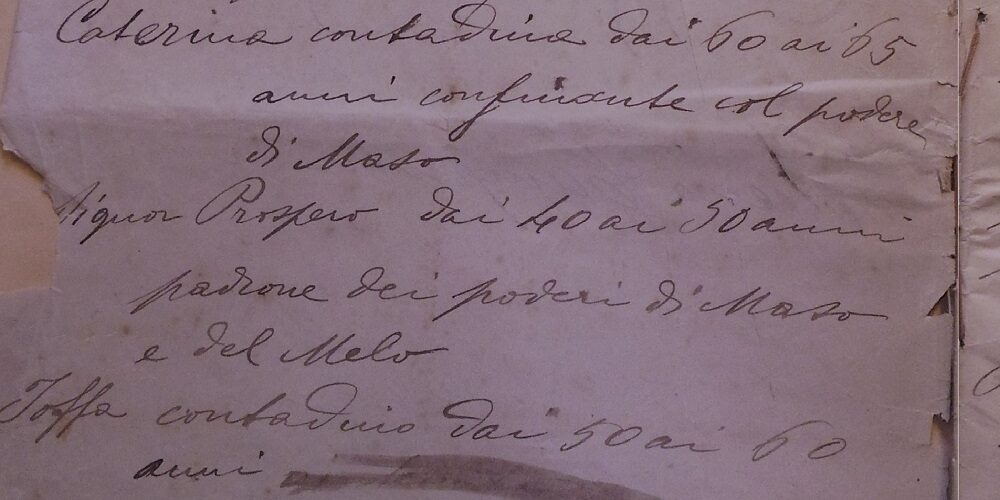 Caterina contadina dai 60 ai 65
anni confinante col podere
di Maso
Signor Prospero dai 40 ai 50 anni
padrone dei poderi di Maso
e del Melo
Toffa contadino dai 50 ai 60
anni